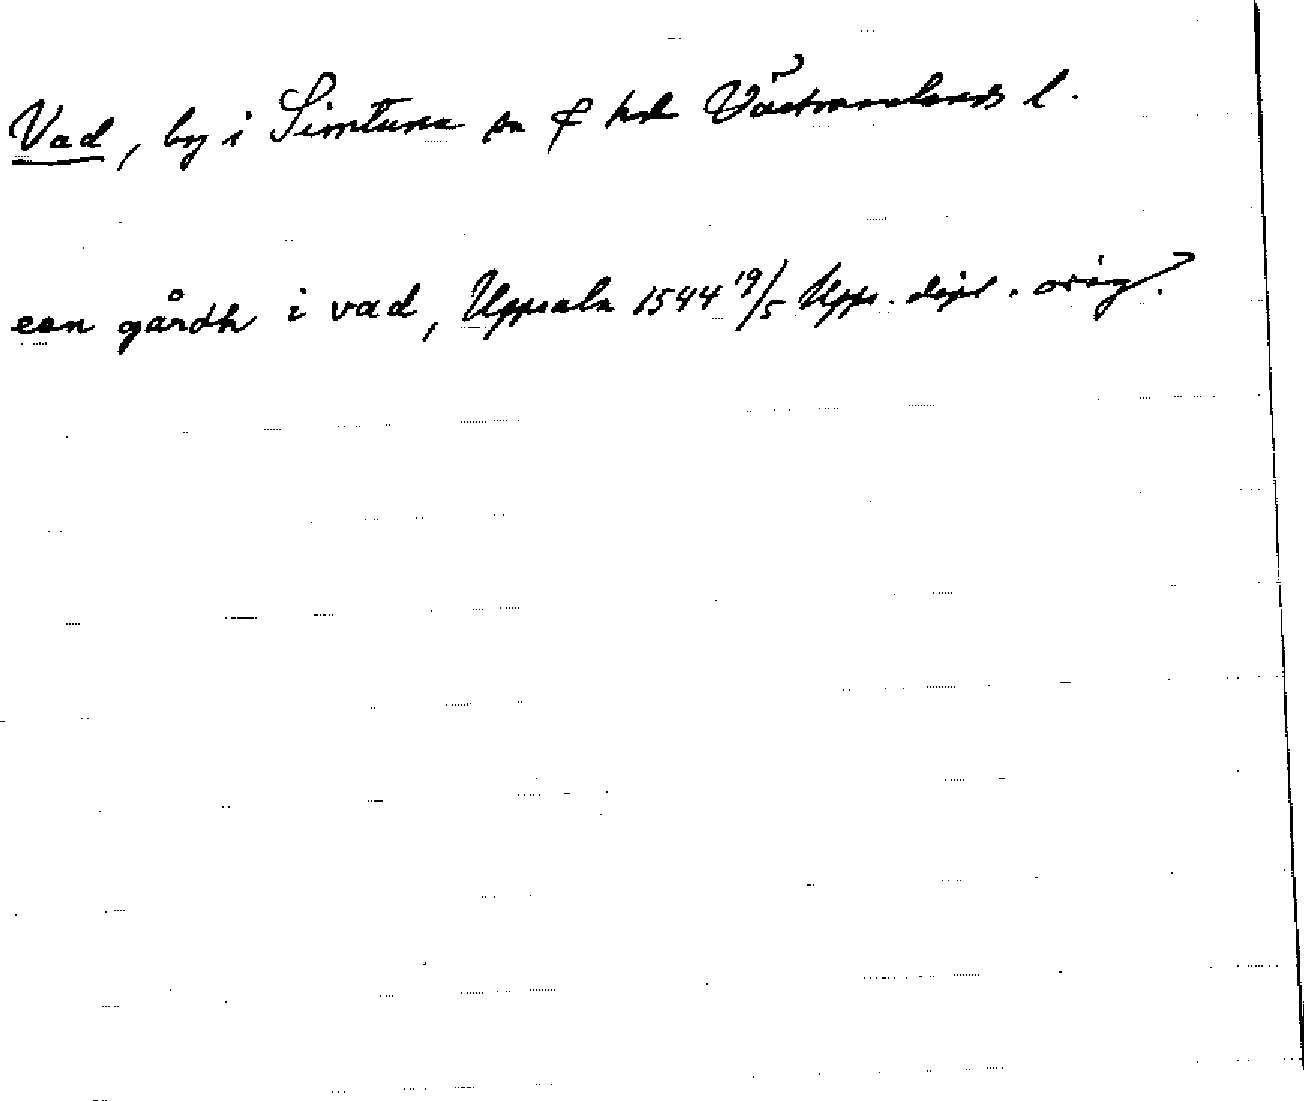 Vad, by i Simtuna sn o hd Västmanlands l.
een gårdh i vad, Uppsala 1544 19/5 Upps. dipl. orig.